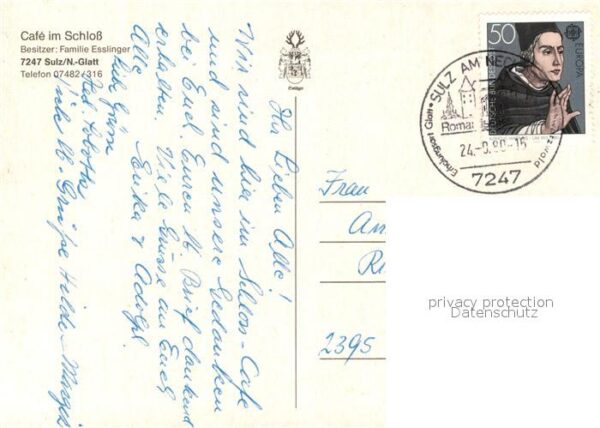 Café im Schloß
Besitzer: Familie Esslinger
7247 Sulz/N.-Glatt
Telefon 07482/316
Ihr Lieben Alle!
Wir sind hier im Schloss-Cafe
und sind unsere Gedanken
bei Euch. Euren lb. Brief dankend
erhalten. Viele Grüsse an Euch
Alle Erika & Adolf
Liebe Grüsse
Viele lb. Grüße Hilde
50
EUROPA
DEUTSCHE BUNDESPOST
SULZ AM NECKAR
Erholungsort Glatt
24.-9.80-15
7247
Frau
2395
privacy protection
Datenschutz